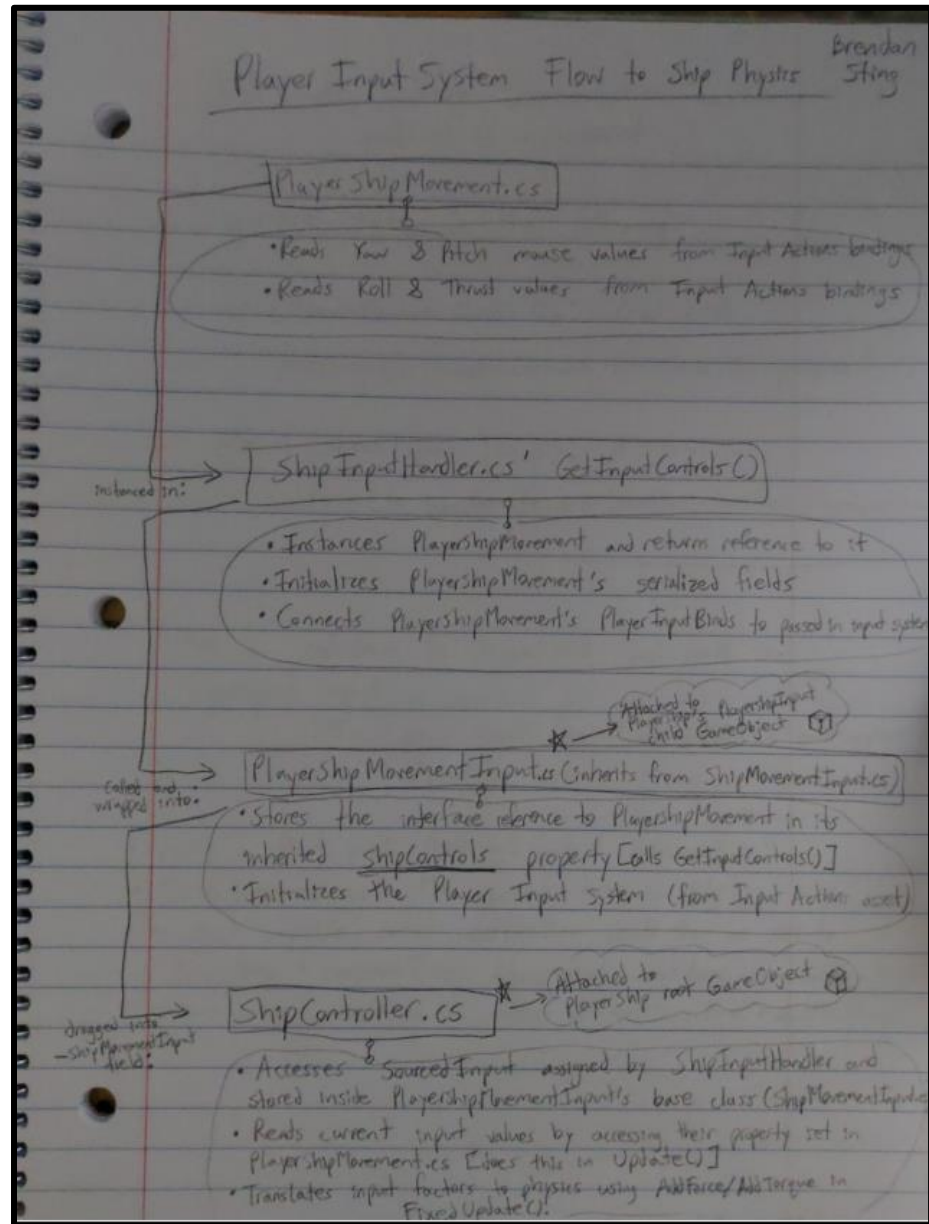 Player Input System Flow to Ship Physics
Brendan
Sting
PlayerShipMovement.cs
• Reads Yaw & Pitch mouse values from Input Actions bindings
• Reads Roll & Thrust values from Input Actions bindings
instanced in:
ShipInputHandler.cs' GetInputControls()
• Instances PlayershipMovement and returns reference to it
• Initializes PlayershipMovement's serialized fields
• Connects PlayershipMovement's PlayerInputBinds to passed in input system
Attached to
Playership's PlayershipInput
child GameObject
called and
wrapped into:
PlayerShipMovementInput.cs (inherits from ShipMovementInput.cs)
• Stores the interface reference to PlayershipMovement in its
inherited shipControls property [calls GetInputControls()]
• Initializes the Player Input System (from Input Actions asset)
Attached to
PlayerShip root GameObject
dragged into
_ShipMovementInput
field:
ShipController.cs
• Accesses SourcedInput assigned by ShipInputHandler and
stored inside PlayershipMovementInput's base class (ShipMovementInput.c
• Reads current input values by accessing their property set in
PlayerShipMovement.cs [does this in Update()]
• Translates input factors to physics using AddForce/AddTorque in
FixedUpdate()!